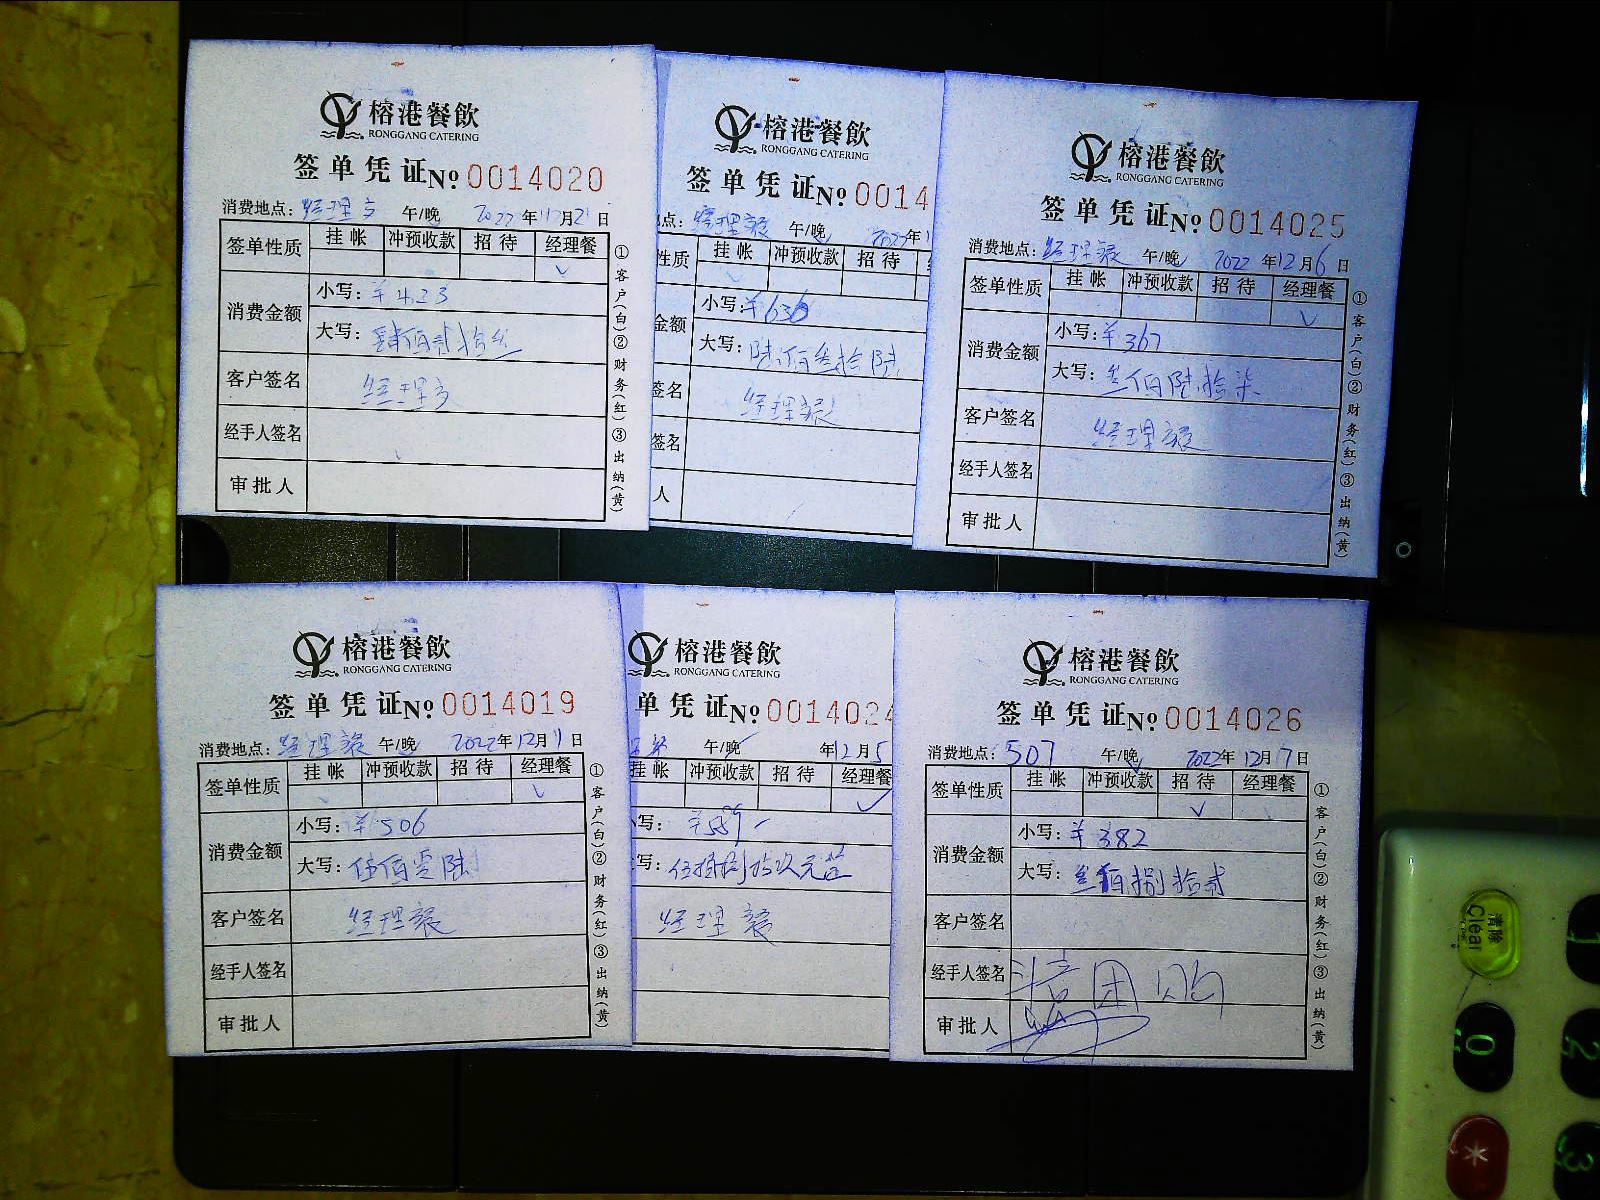 榕港餐飲
RONGGANG CATERING
签单凭证 № 0014020
消费地点: 经理 午/晚 2022年11月2日
签单性质 挂帐 冲预收款 招待 经理餐
✓
消费金额 小写: ¥423
大写: 肆佰贰拾叁
客户签名 经理
经手人签名
审批人
①客户(白)②财务(红)③出纳(黄)
榕港餐飲
RONGGANG CATERING
签单凭证 № 0014
点: 经理 午/晚 2022年1
性质 挂帐 冲预收款 招待
✓
金额 小写: ¥636
大写: 陆佰叁拾陆
签名 经理
签名
人
榕港餐飲
RONGGANG CATERING
签单凭证 № 0014025
消费地点: 经理餐 午/晚 2022年12月6日
签单性质 挂帐 冲预收款 招待 经理餐
✓
消费金额 小写: ¥367
大写: 叁佰陆拾柒
客户签名 经理餐
经手人签名
审批人
①客户(白)②财务(红)③出纳(黄)
榕港餐飲
RONGGANG CATERING
签单凭证 № 0014019
消费地点: 经理餐 午/晚 2022年12月1日
签单性质 挂帐 冲预收款 招待 经理餐
✓
消费金额 小写: ¥506
大写: 伍佰零陆
客户签名 经理餐
经手人签名
审批人
①客户(白)②财务(红)③出纳(黄)
榕港餐飲
RONGGANG CATERING
单凭证 № 0014024
午/晚 年12月5
挂帐 冲预收款 招待 经理餐
✓
写: ¥589
写: 伍佰捌拾玖元整
经理餐
榕港餐飲
RONGGANG CATERING
签单凭证 № 0014026
消费地点: 507 午/晚 2022年12月7日
签单性质 挂帐 冲预收款 招待 经理餐
✓
消费金额 小写: ¥382
大写: 叁佰捌拾贰
客户签名
经手人签名 团购
审批人
①客户(白)②财务(红)③出纳(黄)
清除
Clear
0
*
1
2
3